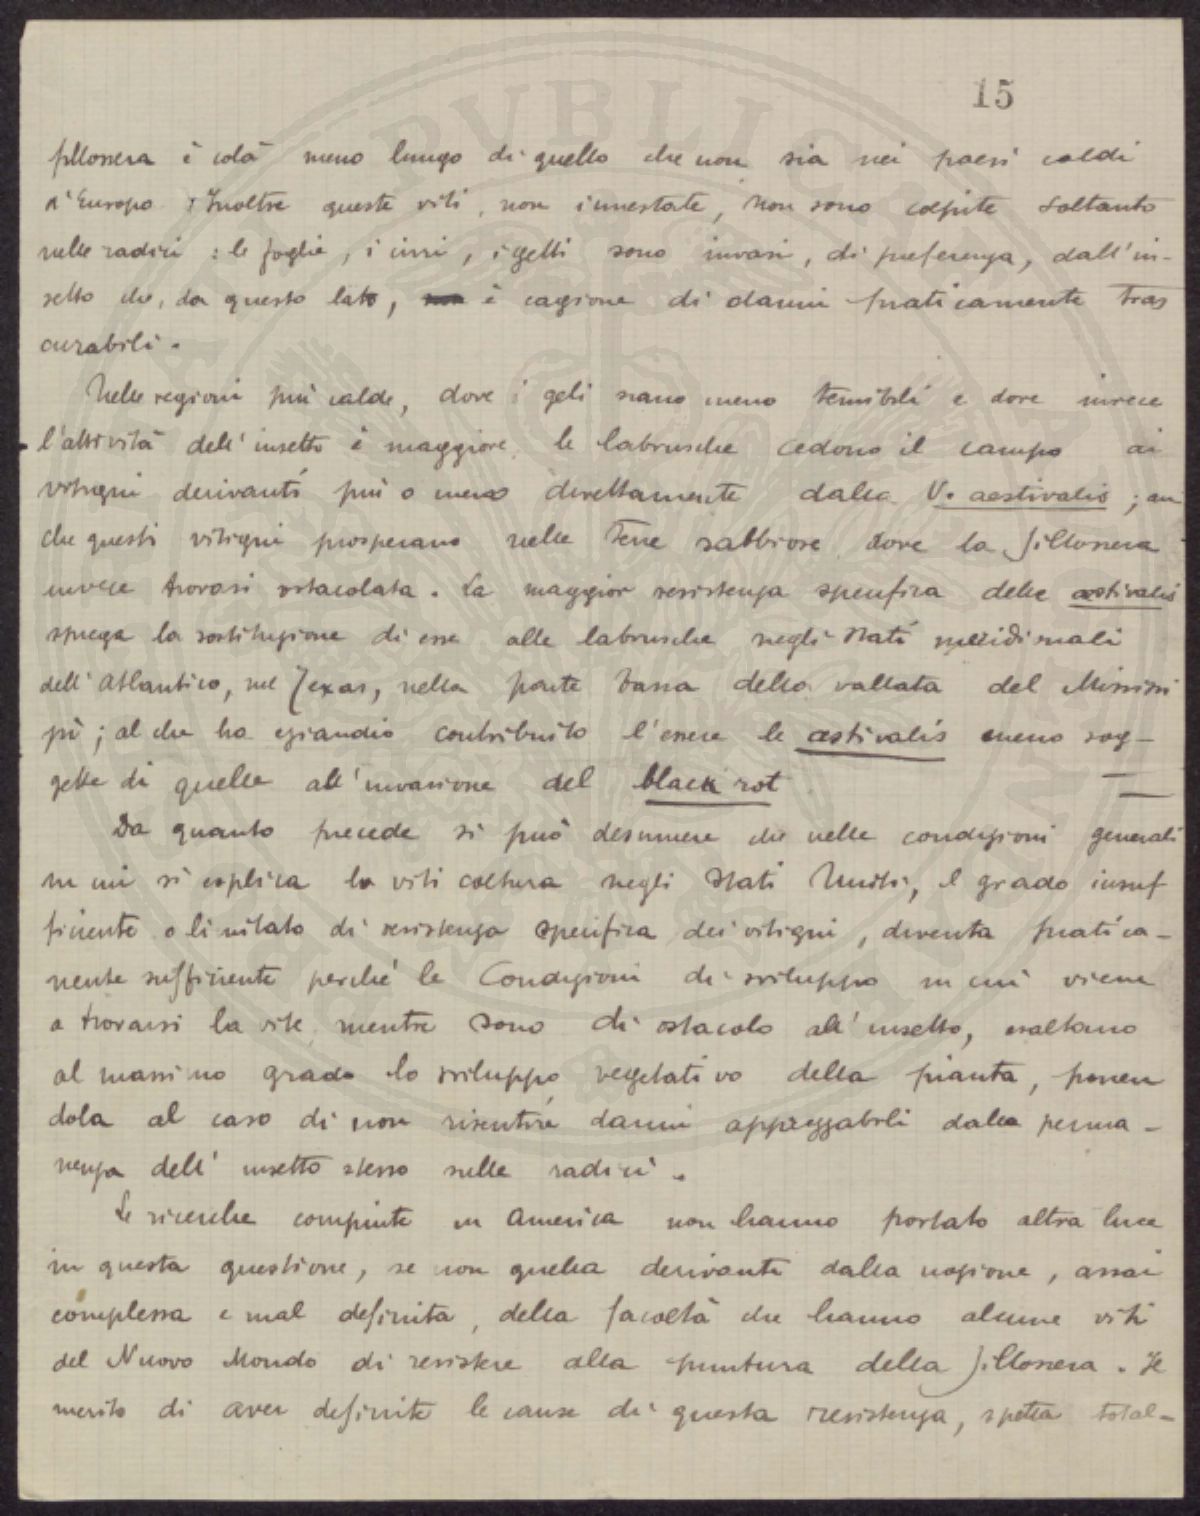 15
fillossera è colà meno lungo di quello che non sia nei paesi caldi
d'Europa. Inoltre queste viti, non innestate, non sono colpite soltanto
nelle radici: le foglie, i cirri, i getti sono invasi, di preferenza, dall'in-
setto che, da questo lato, è cagione di danni praticamente tras
curabili.
Nelle regioni più calde, dove i geli siano meno temibili e dove invece
l'attività dell'insetto è maggiore, le labrusche cedono il campo ai
vitigni derivanti più o meno direttamente dalla V. aestivalis; an
che questi vitigni prosperano nelle terre sabbiose dove la fillossera
invece trovasi ostacolata. La maggior resistenza specifica delle æstivalis
spiega la sostituzione di esse alle labrusche negli Stati meridionali
dell'Atlantico, nel Texas, nella parte bassa della vallata del Missisi
pì; al che ha eziandio contribuito l'essere le æstivalis meno sog-
gette di quelle all'invasione del black rot
Da quanto precede si può desumere che nelle condizioni generali
in cui si esplica la viti coltura negli Stati Uniti, il grado insuf
ficiente o limitato di resistenza specifica dei vitigni, diventa pratica-
mente sufficiente perchè le Condizioni di sviluppo in cui viene
a trovarsi la vite, mentre sono di ostacolo all'insetto, esaltano
al massimo grado lo sviluppo vegetativo della pianta, ponen
dola al caso di non risentire danni apprezzabili dalla perma-
nenza dell'insetto stesso sulle radici.
Le ricerche compiute in America non hanno portato altra luce
in questa questione, se non quella derivante dalla nozione, assai
complessa e mal definita, della facoltà che hanno alcune viti
del Nuovo Mondo di resistere alla puntura della fillossera. Il
merito di aver definite le cause di questa resistenza, spetta total-